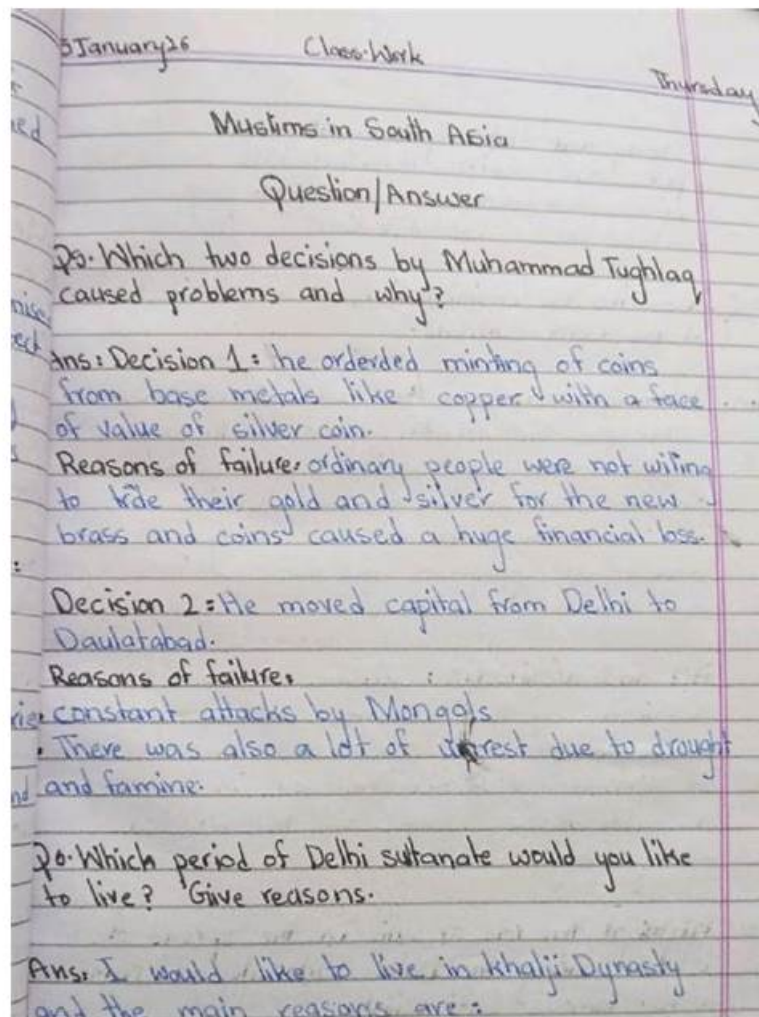 5 January 26 Class Work Thursday
Muslims in South Asia
Question/Answer
Qo. Which two decisions by Muhammad Tughlaq
caused problems and why?
Ans: Decision 1: he orderded minting of coins
from base metals like copper with a face
of value of silver coin.
Reasons of failure: ordinary people were not wiling
to their gold and silver for the new
brass and coins caused a huge financial loss.
Decision 2: He moved capital from Delhi to
Daulatabad.
Reasons of failure:
constant attacks by Mongols
• There was also a lot of unrest due to drought
and famine.
Qo. Which period of Delhi sultanate would you like
to live? Give reasons.
Ans: I would like to live in khalji Dynasty
and the main reasons are: